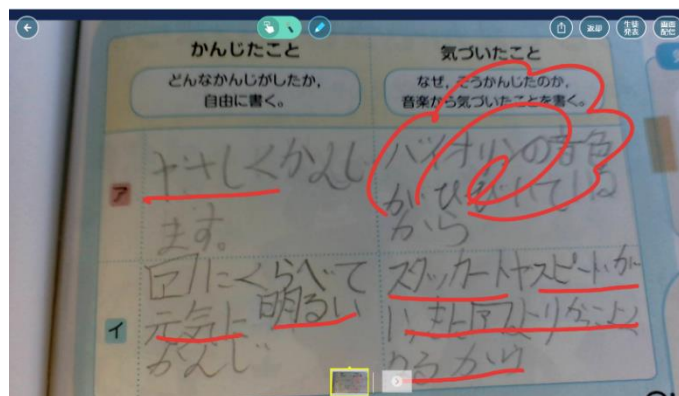 返却
生徒発表
画面配信
かんじたこと
どんなかんじがしたか，
自由に書く。
気づいたこと
なぜ，そうかんじたのか，
音楽から気づいたことを書く。
ア
やさしくかんじ
ます。
バイオリンの音色
がひびいている
から
イ
アにくらべて
元気に 明るい
かんじ
スタッカートやスピードが
アよりかっこよく
なるから